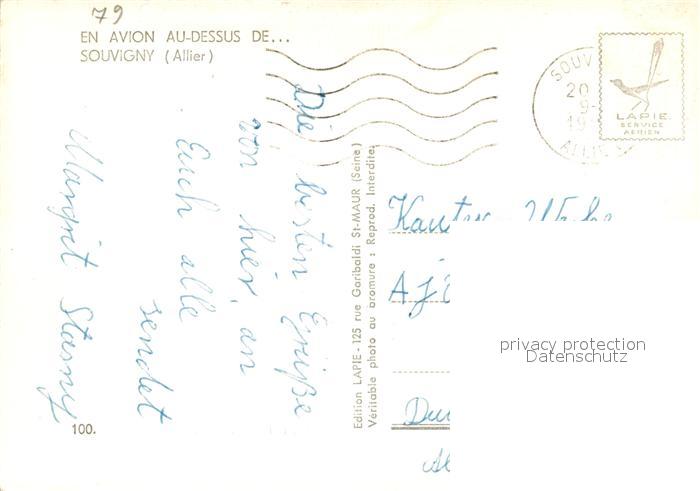 79
EN AVION AU-DESSUS DE...
SOUVIGNY (Allier)
SOUV
20
9-
19
ALLIE
LAPIE
SERVICE
AERIEN
Die besten Grüße
von hier, an
Euch alle
sendet
Margrit
Edition LAPIE - 125 rue Garibaldi St-MAUR (Seine)
Véritable photo au bromure : Reprod. Interdite.
privacy protection
Datenschutz
100.